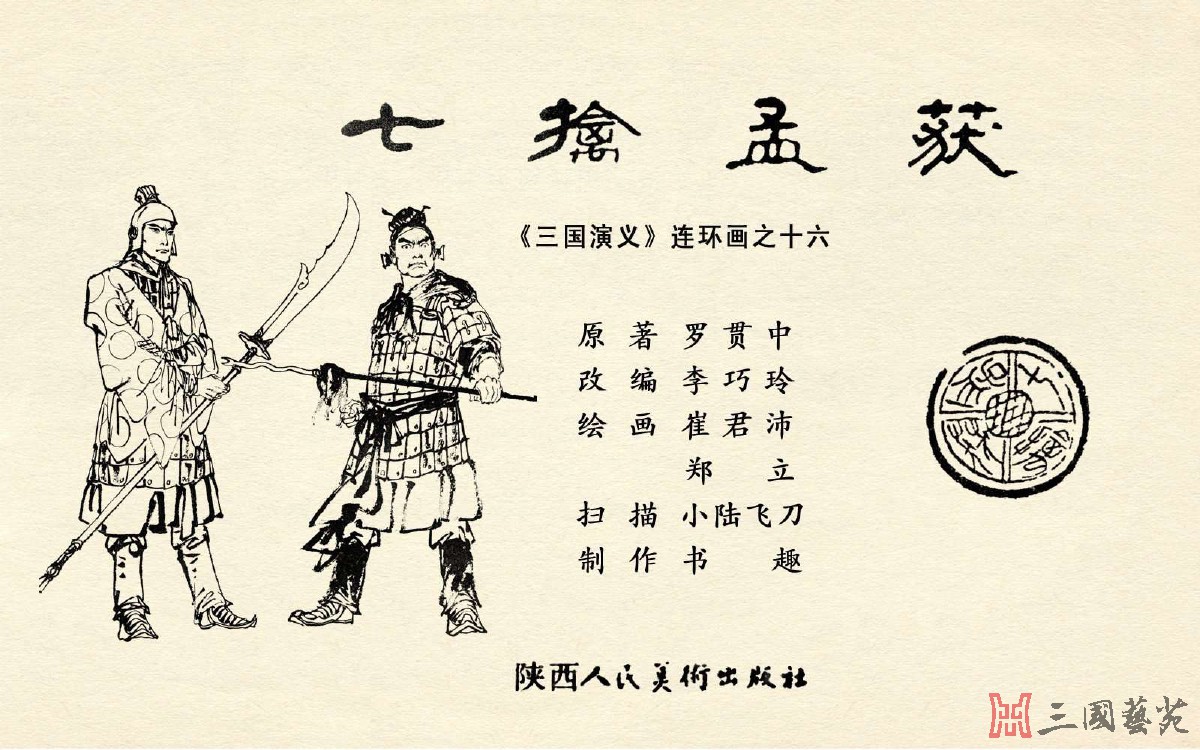 七擒孟获
《三国演义》连环画之十六
原著 罗贯中
改编 李巧玲
绘画 崔君沛
郑立
扫描 小陆飞刀
制作 书趣
陕西人民美術出版社
三國藝苑